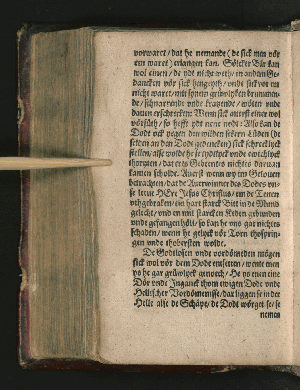 vorwaret / dat he nemande (de sick men vör
em waret) erlangen kan. Sölcker Bär kan
wol einen / de ydt nicht weth / in anden Ge-
dancken vör sick hengeyth / unde sick vor em
nicht waret / mit synem gruwlyken brummen-
de / schnarrende unde kratzende / wöten unde
dauen erschrecken: Wenn sick auerst einer wol
vörsüth / so hefft ydt nene nodt: Also kan de
Dodt ock yegen den wilden sekern Lüden (de
selden an den Dodt gedencken) sick schrecklyck
stellen / alse wolde he se tydtlyck unde ewichlyck
thoryten / dat er es Gebeentes nichts daruan
kamen scholde. Auerst wenn wy im Gelouen
betrachten / dat de Auerwinner des Dodes un-
se leeue HEre Jesus Christus / em de Teenen
uthgebraken / ein hart starck Bitt in de Mund
gelecht / und en mit starcken Keden gebunden
unde gefangen höll / so kan he uns gar nichts
schaden / wenn he gelyck vör Torn thosprin-
gen unde thobersten wolde.
De Godtlosen unde vordömeden mögen
sick wol vör dem Dode entsetten / wente men
yo he gar grüwlyck genoech / He ys enen eine
Dör unde Inganck thom ewigen Dode unde
Hellischer Vordömenisse / dar liggen se in der
Helle alse de Schäpe / de Dodt wörget se / se
nemen